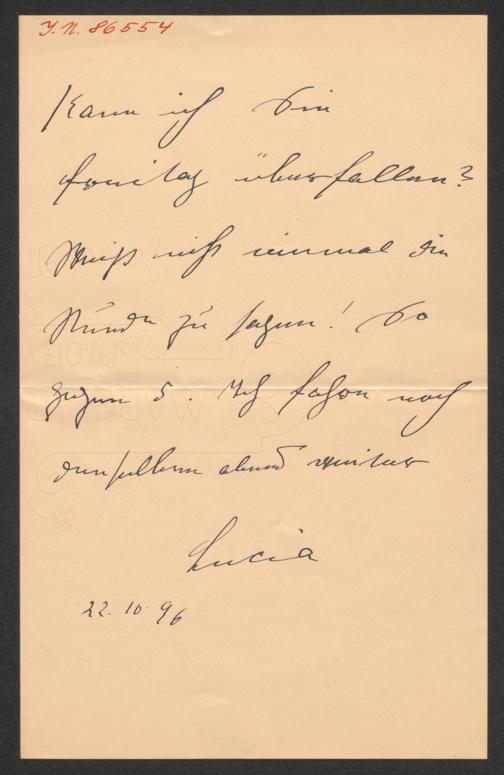 J.N. 86554
Kann ich Sie
Freitag überfallen?
Weiß nicht einmal die
Stunde zu sagen! So
gegen 5. Ich fahre noch
denselben abend weiter
Lucia
22. 10. 96